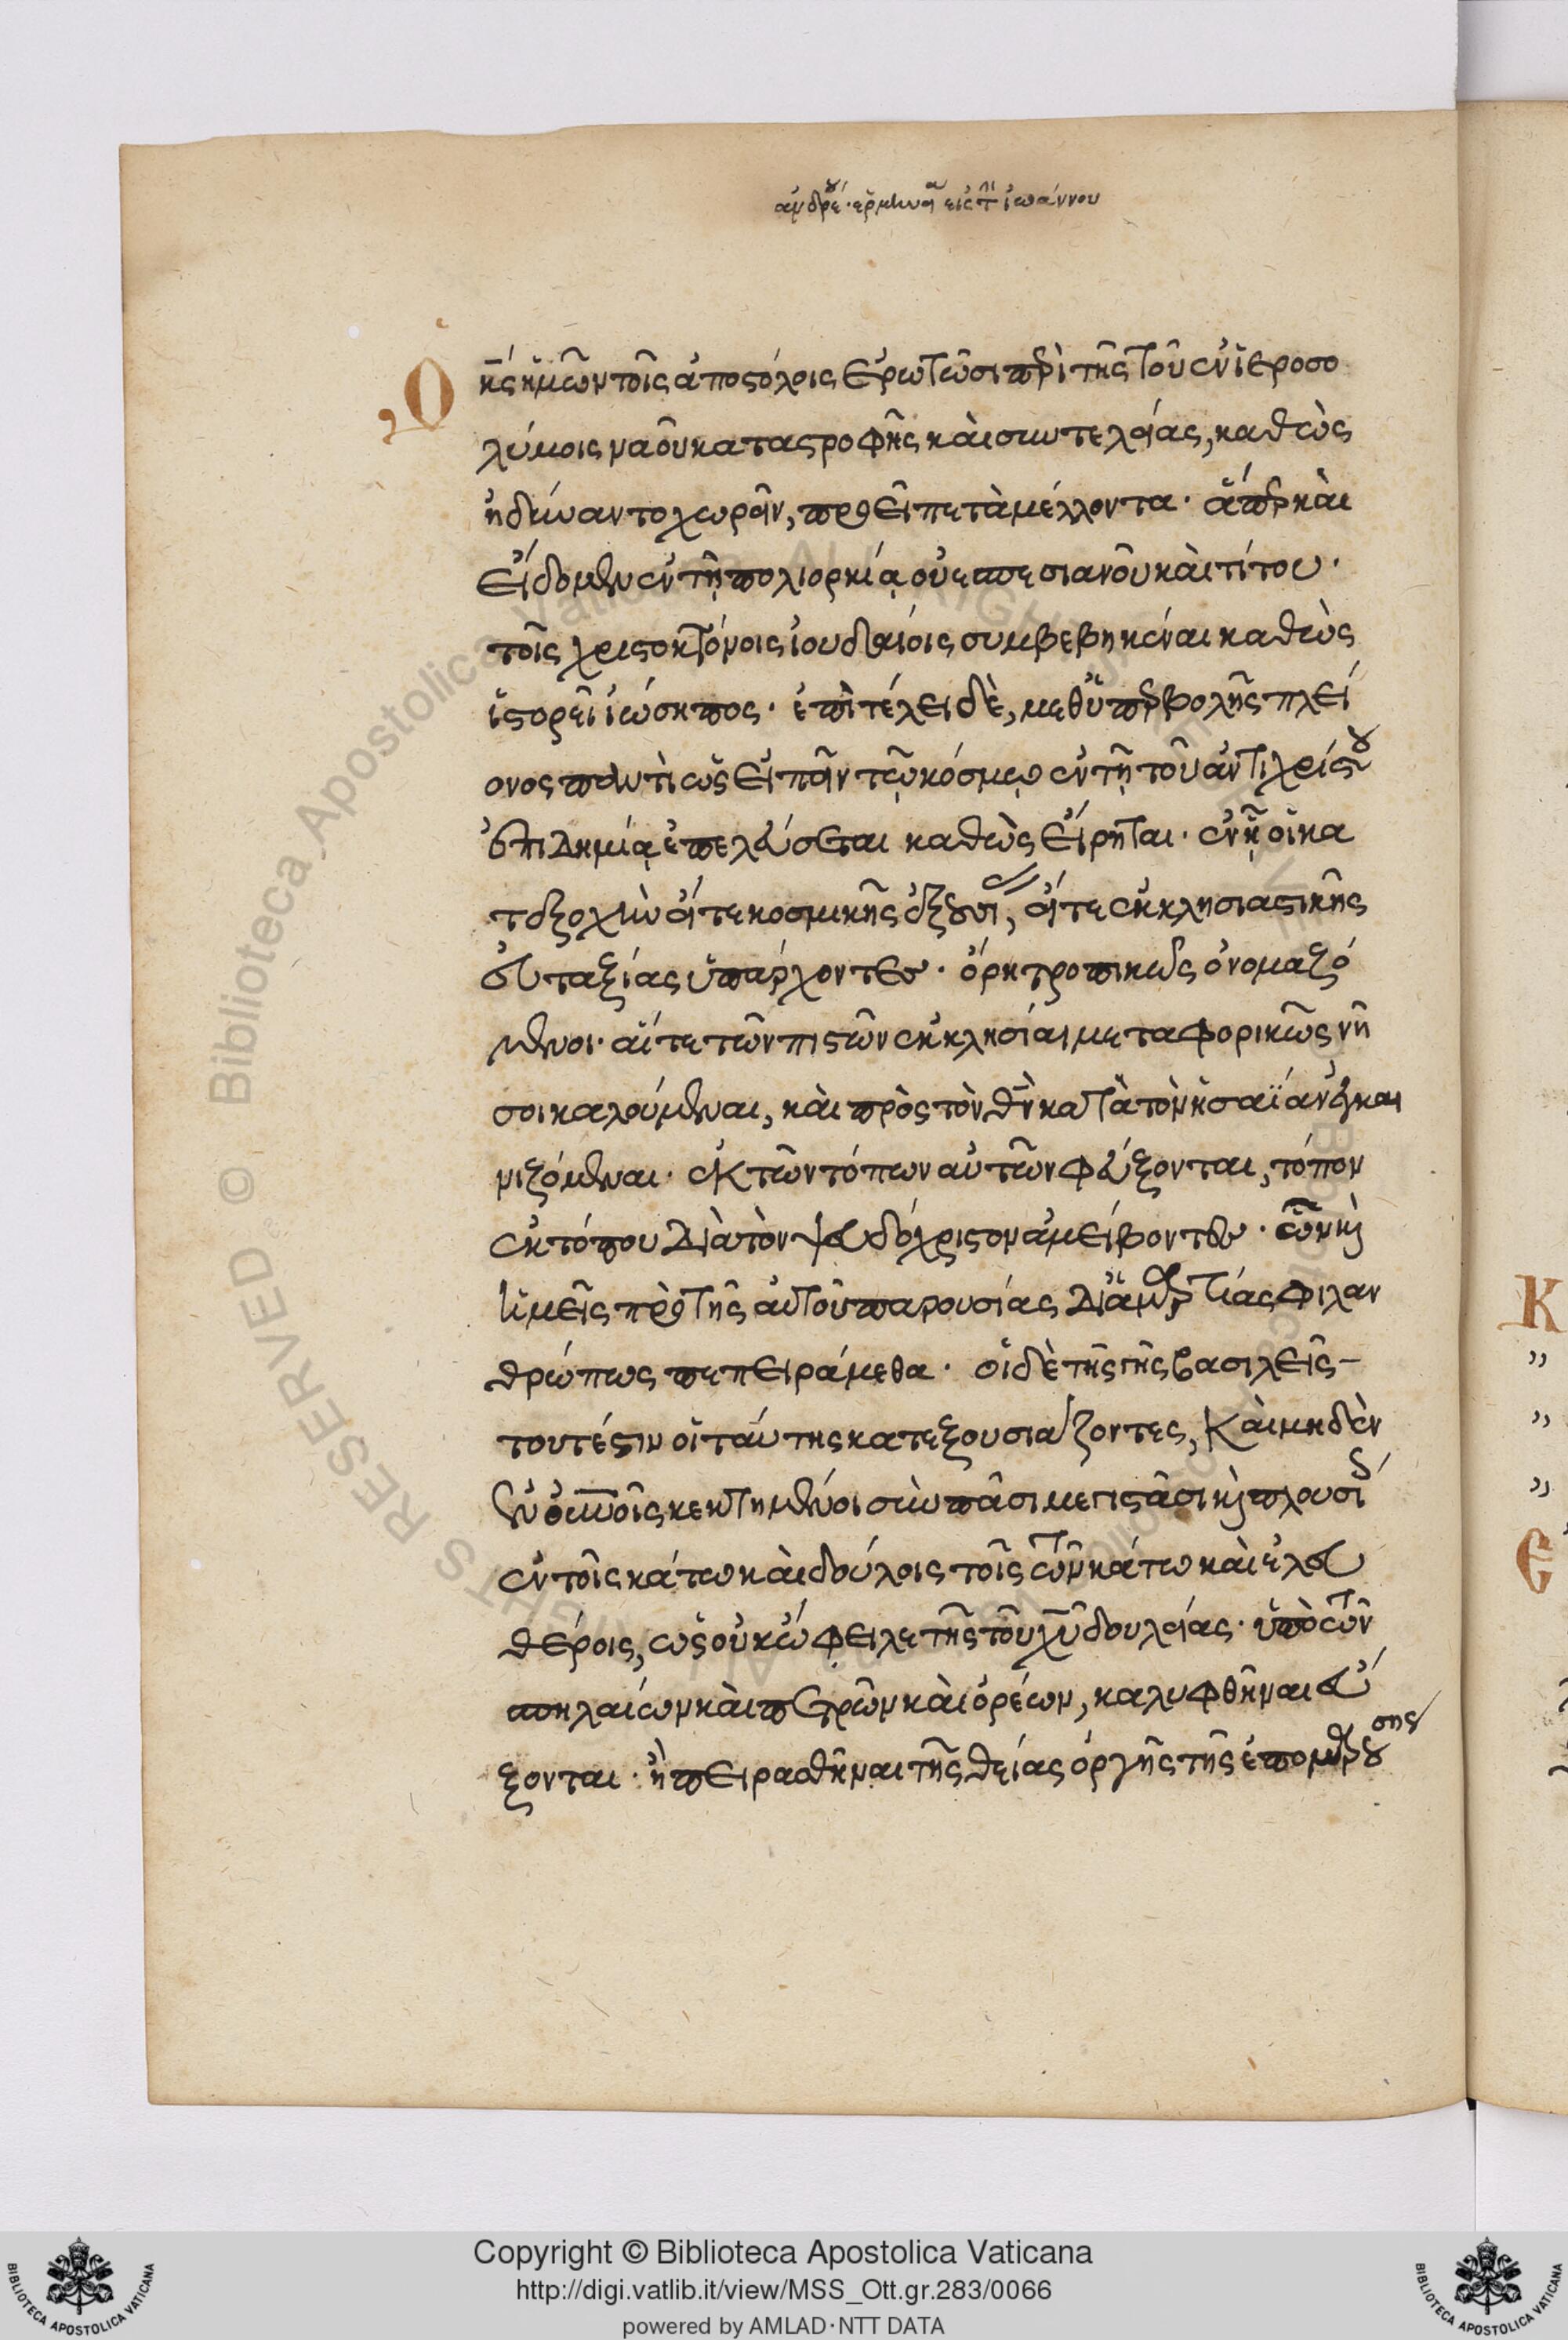 ἀνδρέου ἑρμηνεία εἰς τὴν ἀπ ἰωάννου
Ὁ κς ἡμῶν τοῖς ἀποστόλοις ἐρωτῶσι περὶ τῆς τοῦ ἐν ἱεροσο
λύμοις ναοῦ καταστροφῆς καὶ συντελείας, καθὼς
ἠδύναντο χωρεῖν, προεῖπε τὰ μέλλοντα· ἅπερ καὶ
εἴδομεν ἐν τῇ πολιορκίᾳ οὐεσπεσιανοῦ καὶ τίτου·
τοῖς χριστοκτόνοις ἰουδαίοις συμβεβηκέναι καθὼς
ἱστορεῖ ἰώσηπος· ἐπὶ τέλει δὲ, μεθ ὑπερβολῆς πλεί
ονος παντὶ ὡς εἰπεῖν τῷ κόσμῳ ἐν τῇ τοῦ ἀντιχρίστου
ἐπιδημίᾳ ἐπελεύσεται καθὼς εἴρηται· ἐν ᾗ οἱ κα
τεξοχὴν εἴτε κοσμικῆς ἐξουσίας, εἴτε ἐκκλησιαστικῆς
εὐταξίας ὑπάρχοντες· ὄρη τροπικῶς ὀνομαζό
μενοι· αἵ τε τῶν πιστῶν ἐκκλησίαι μεταφορικῶς νῆ
σοι καλούμεναι, καὶ πρὸς τὸν θν κατὰ τὸν ἡσαΐαν ἐγκαι
νιζόμεναι· ἐκ τῶν τόπων αὐτῶν φεύξονται, τόπον
ἐκ τόπου διὰ τὸν ψευδόχριστον ἀμείβοντες· ὧν καὶ
ἡμεῖς πρὸ τῆς αὐτοῦ παρουσίας δι ἁμαρτίας φιλαν
θρώπως πεπειράμεθα· οἱ δὲ τῆς γῆς βασιλεῖς –
τουτέστιν οἱ ταύτης κατεξουσιάζοντες, καὶ μηδὲν
ἐν οὐνοῖς κεκτημένοι σὺν πᾶσι μεγιστᾶσι καὶ πλουσί
ἐν τοῖς κάτω καὶ δούλοις τοῖς τῶν κάτω καὶ ἐλευ
θέροις, ὡς οὐκ ὤφειλε τῆς τοῦ χυ δουλείας· ὑπὸ τῶν
σπηλαίων καὶ πετρῶν καὶ ὀρέων, καλυφθῆναι εὔ
ξονται· ἢ πειρασθῆναι τῆς θείας ὀργῆς τῆς ἐπομβρούσης
Copyright © Biblioteca Apostolica Vaticana
http://digi.vatlib.it/view/MSS_Ott.gr.283/0066
powered by AMLAD·NTT DATA